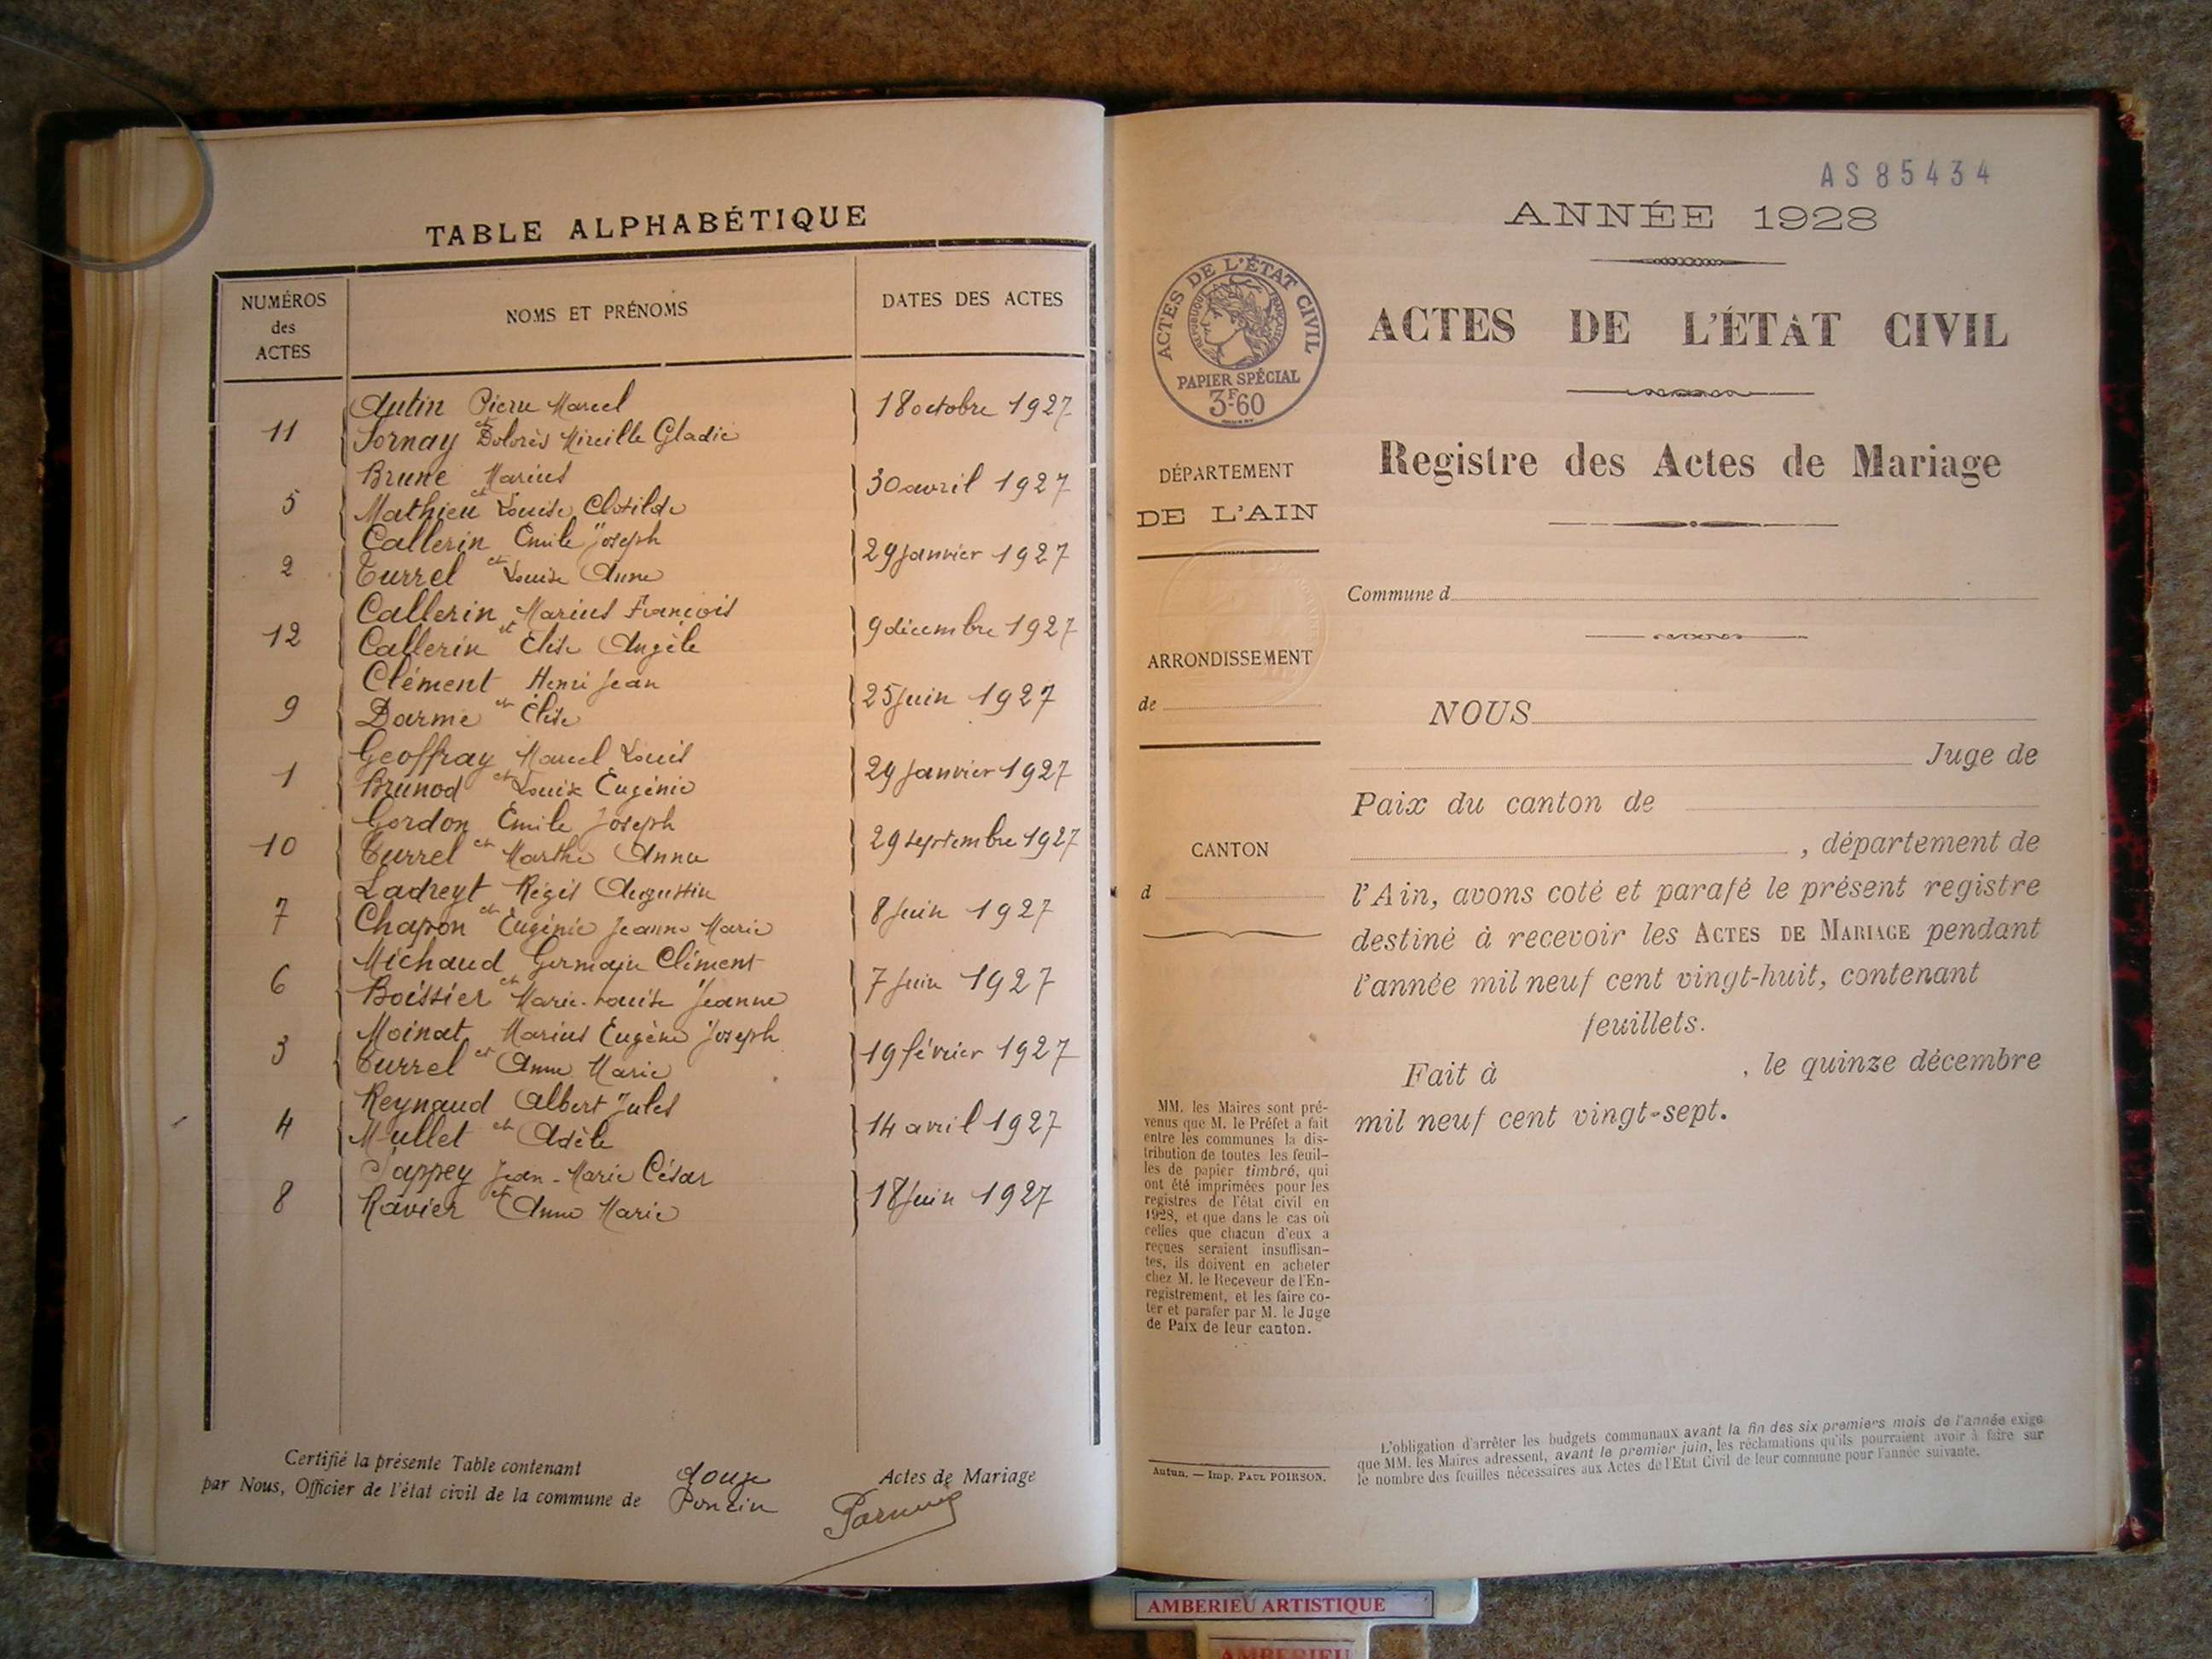 TABLE ALPHABÉTIQUE
NUMÉROS
des
ACTES
NOMS ET PRÉNOMS
DATES DES ACTES
Autin Pierre Marcel
11 et 18 octobre 1927
Sornay Dolorès Mireille Gladie
Brune Marius
5 et 30 avril 1927
Mathieu Louise Clotilde
Callerin Emile Joseph
2 et 29 janvier 1927
Turrel Louise Anne
Callerin Marius François
12 et 9 décembre 1927
Callerin Elise Angèle
Clément Henri Jean
9 et 25 juin 1927
Darme Elise
Geoffray Marcel Louis
1 et 29 janvier 1927
Brunod Louise Eugénie
Gordon Emile Joseph
10 et 29 septembre 1927
Turrel Marthe Anna
Ladreyt Régis Augustin
7 et 8 juin 1927
Chapon Eugénie Jeanne Marie
Michaud Germain Clément
6 et 7 juin 1927
Boissier Marie-Louise Jeanne
Moinat Marius Eugène Joseph
3 et 19 février 1927
Turrel Anne Marie
Reynaud Albert Jules
4 et 14 avril 1927
Mullet Adèle
Sappey Jean-Marie César
8 et 18 juin 1927
Ravier Anne Marie
Certifié la présente Table contenant douze Actes de Mariage
par Nous, Officier de l'état civil de la commune de Poncin
AS 85434
ANNÉE 1928
ACTES DE L'ÉTAT CIVIL
RÉPUBLIQUE FRANÇAISE
PAPIER SPÉCIAL
3F60
ACTES DE L'ÉTAT CIVIL
Registre des Actes de Mariage
DÉPARTEMENT
DE L'AIN
Commune d
ARRONDISSEMENT
de
NOUS
Juge de
Paix du canton de
CANTON
d
, département de
l'Ain, avons coté et parafé le présent registre
destiné à recevoir les ACTES DE MARIAGE pendant
l'année mil neuf cent vingt-huit, contenant
feuillets.
Fait à , le quinze décembre
mil neuf cent vingt-sept.
MM. les Maires sont pré-
venus que M. le Préfet a fait
entre les communes la dis-
tribution de toutes les feuil-
les de papier timbré, qui
ont été imprimées pour les
registres de l'état civil en
1928, et que dans le cas où
celles que chacun d'eux a
reçues seraient insuffisan-
tes, ils doivent en acheter
chez M. le Receveur de l'En-
registrement, et les faire co-
ter et parafer par M. le Juge
de Paix de leur canton.
Autun. — Imp. PAUL POIRSON.
L'obligation d'arrêter les budgets communaux avant la fin des six premiers mois de l'année exige
que MM. les Maires adressent, avant le premier juin, les réclamations qu'ils pourraient avoir à faire sur
le nombre des feuilles nécessaires aux Actes de l'Etat Civil de leur commune pour l'année suivante.
AMBERIEU ARTISTIQUE
AMBERIEU